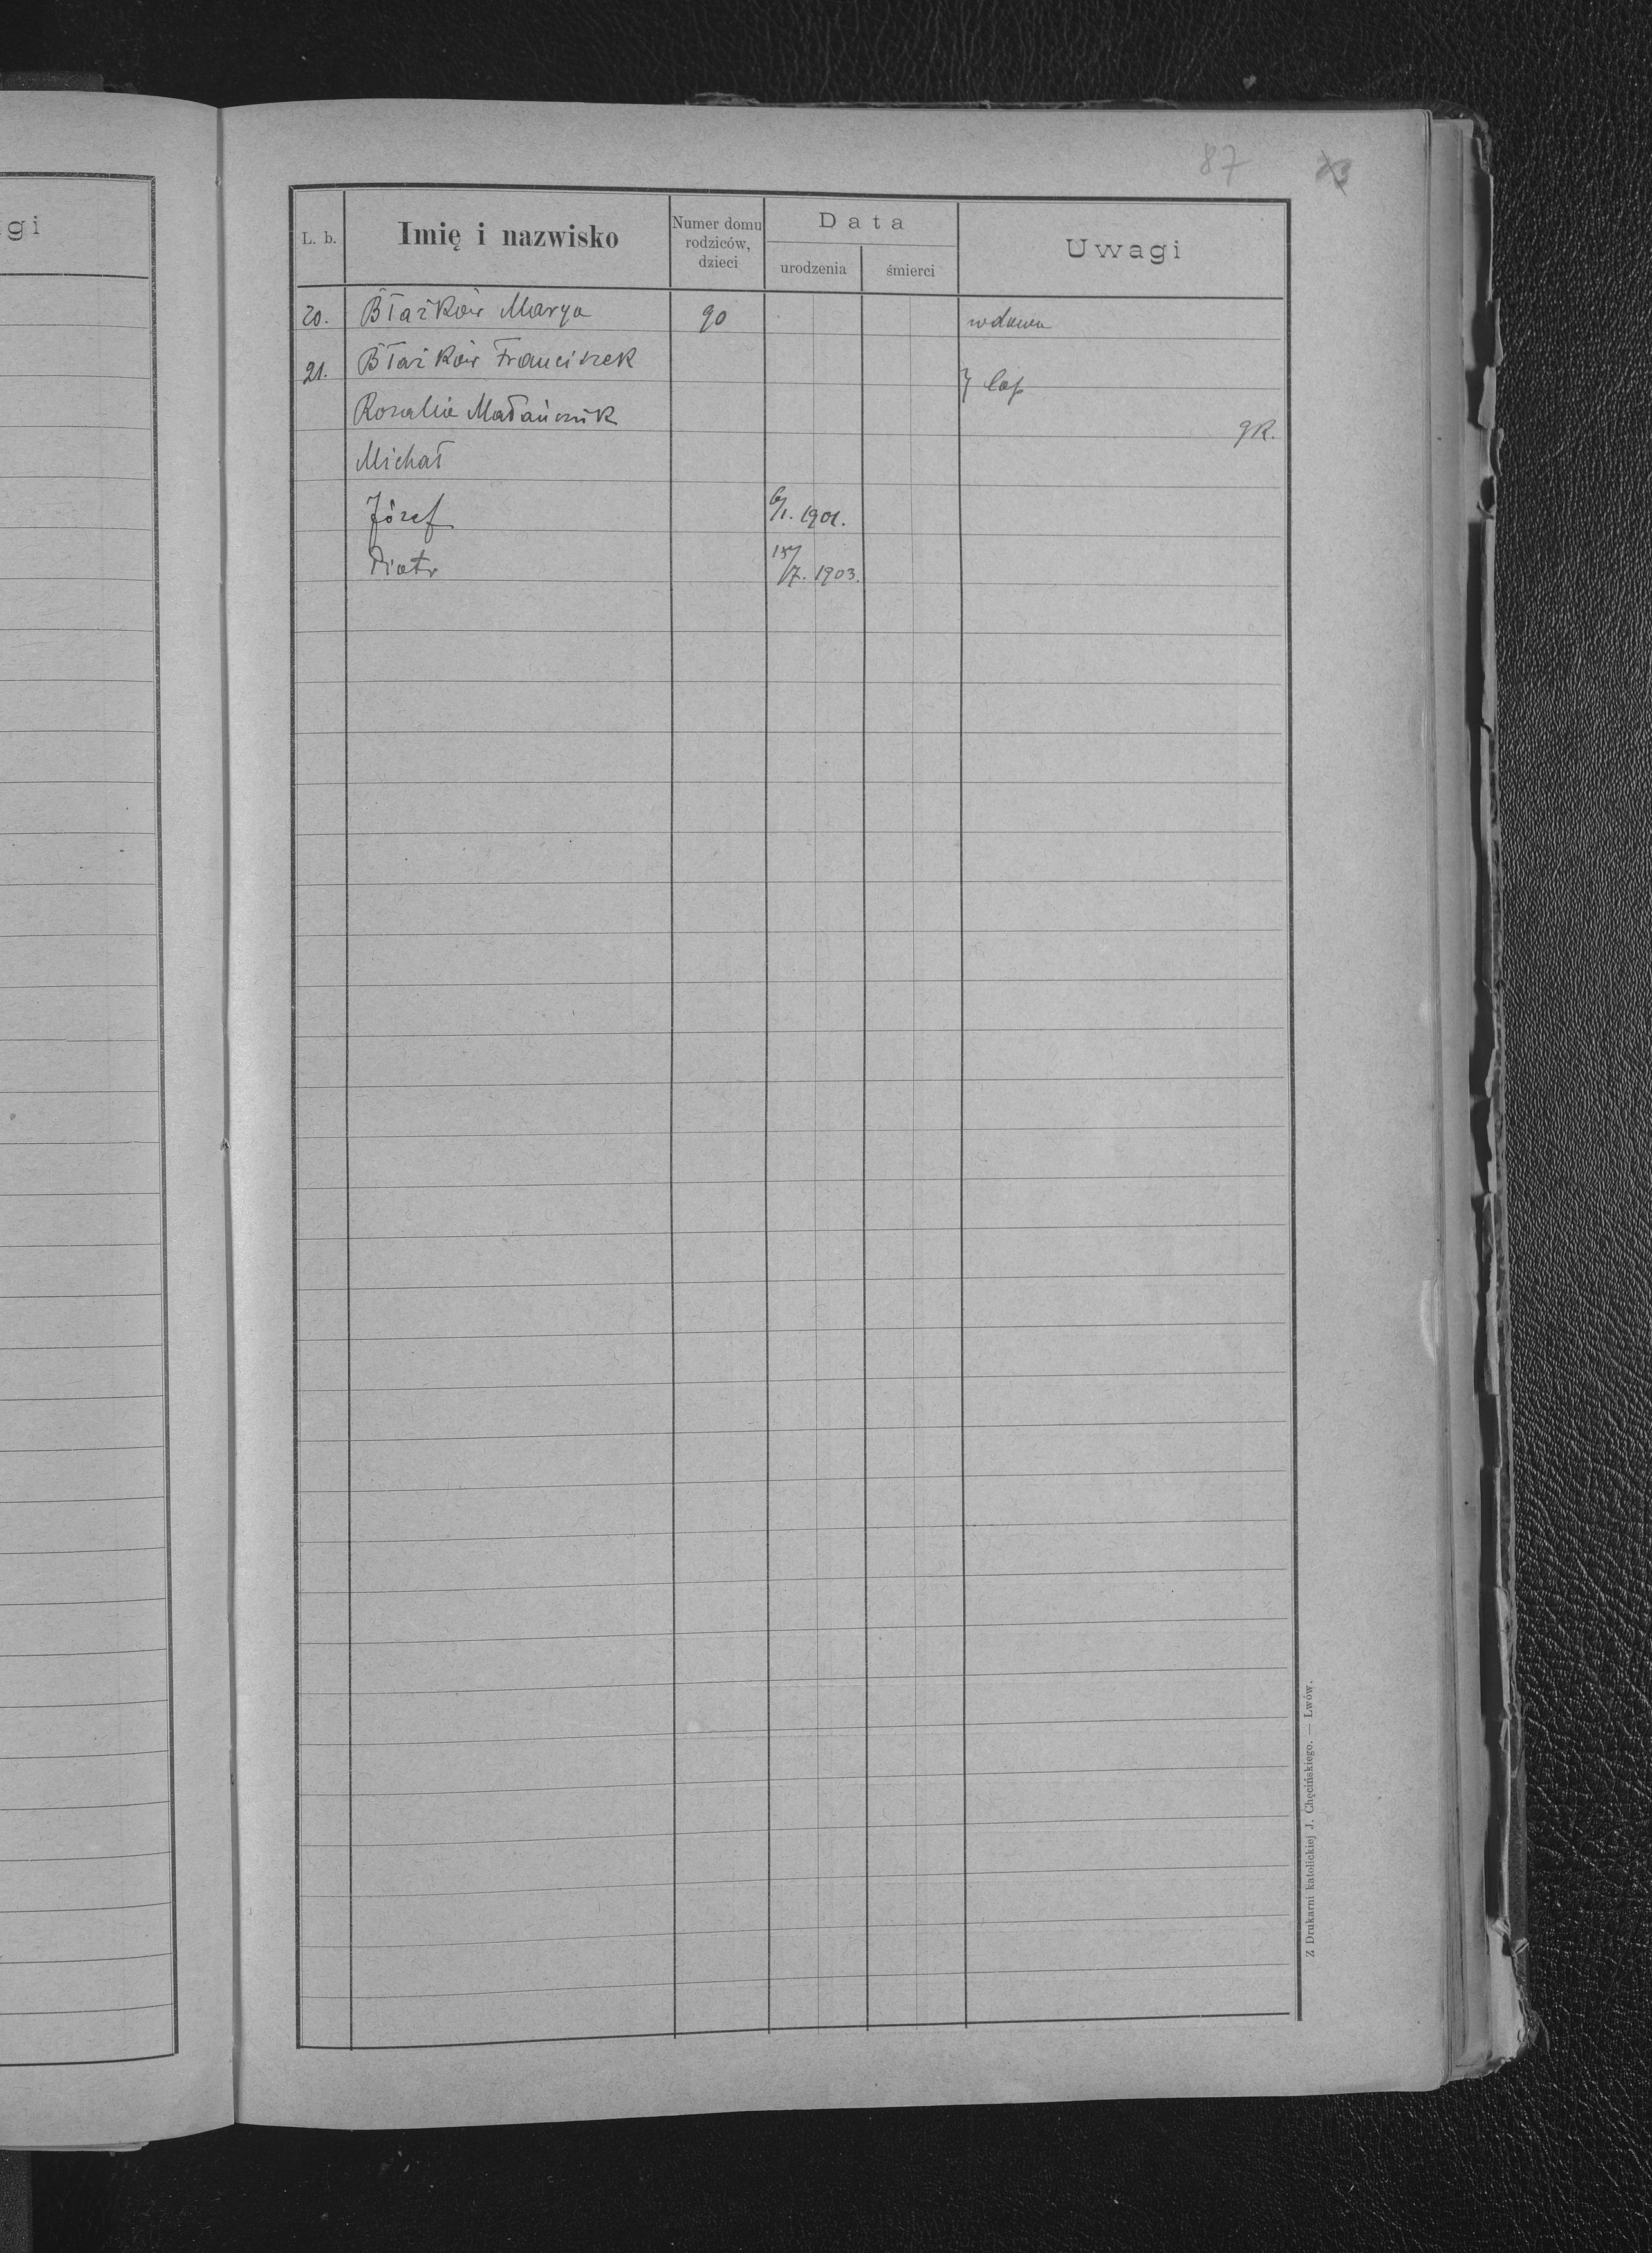 87
gi
L. b.
Imię i nazwisko
Numer domu
rodziców,
dzieci
Data
urodzenia
śmierci
Uwagi
20. Błażków Marya 90 wdowa
21. Błażków Franciszek
Rozalia gk.
Michał
Józef 6/1. 1901.
Piotr 15/7. 1903.
Z Drukarni katolickiej J. Chęcińskiego. — Lwów.